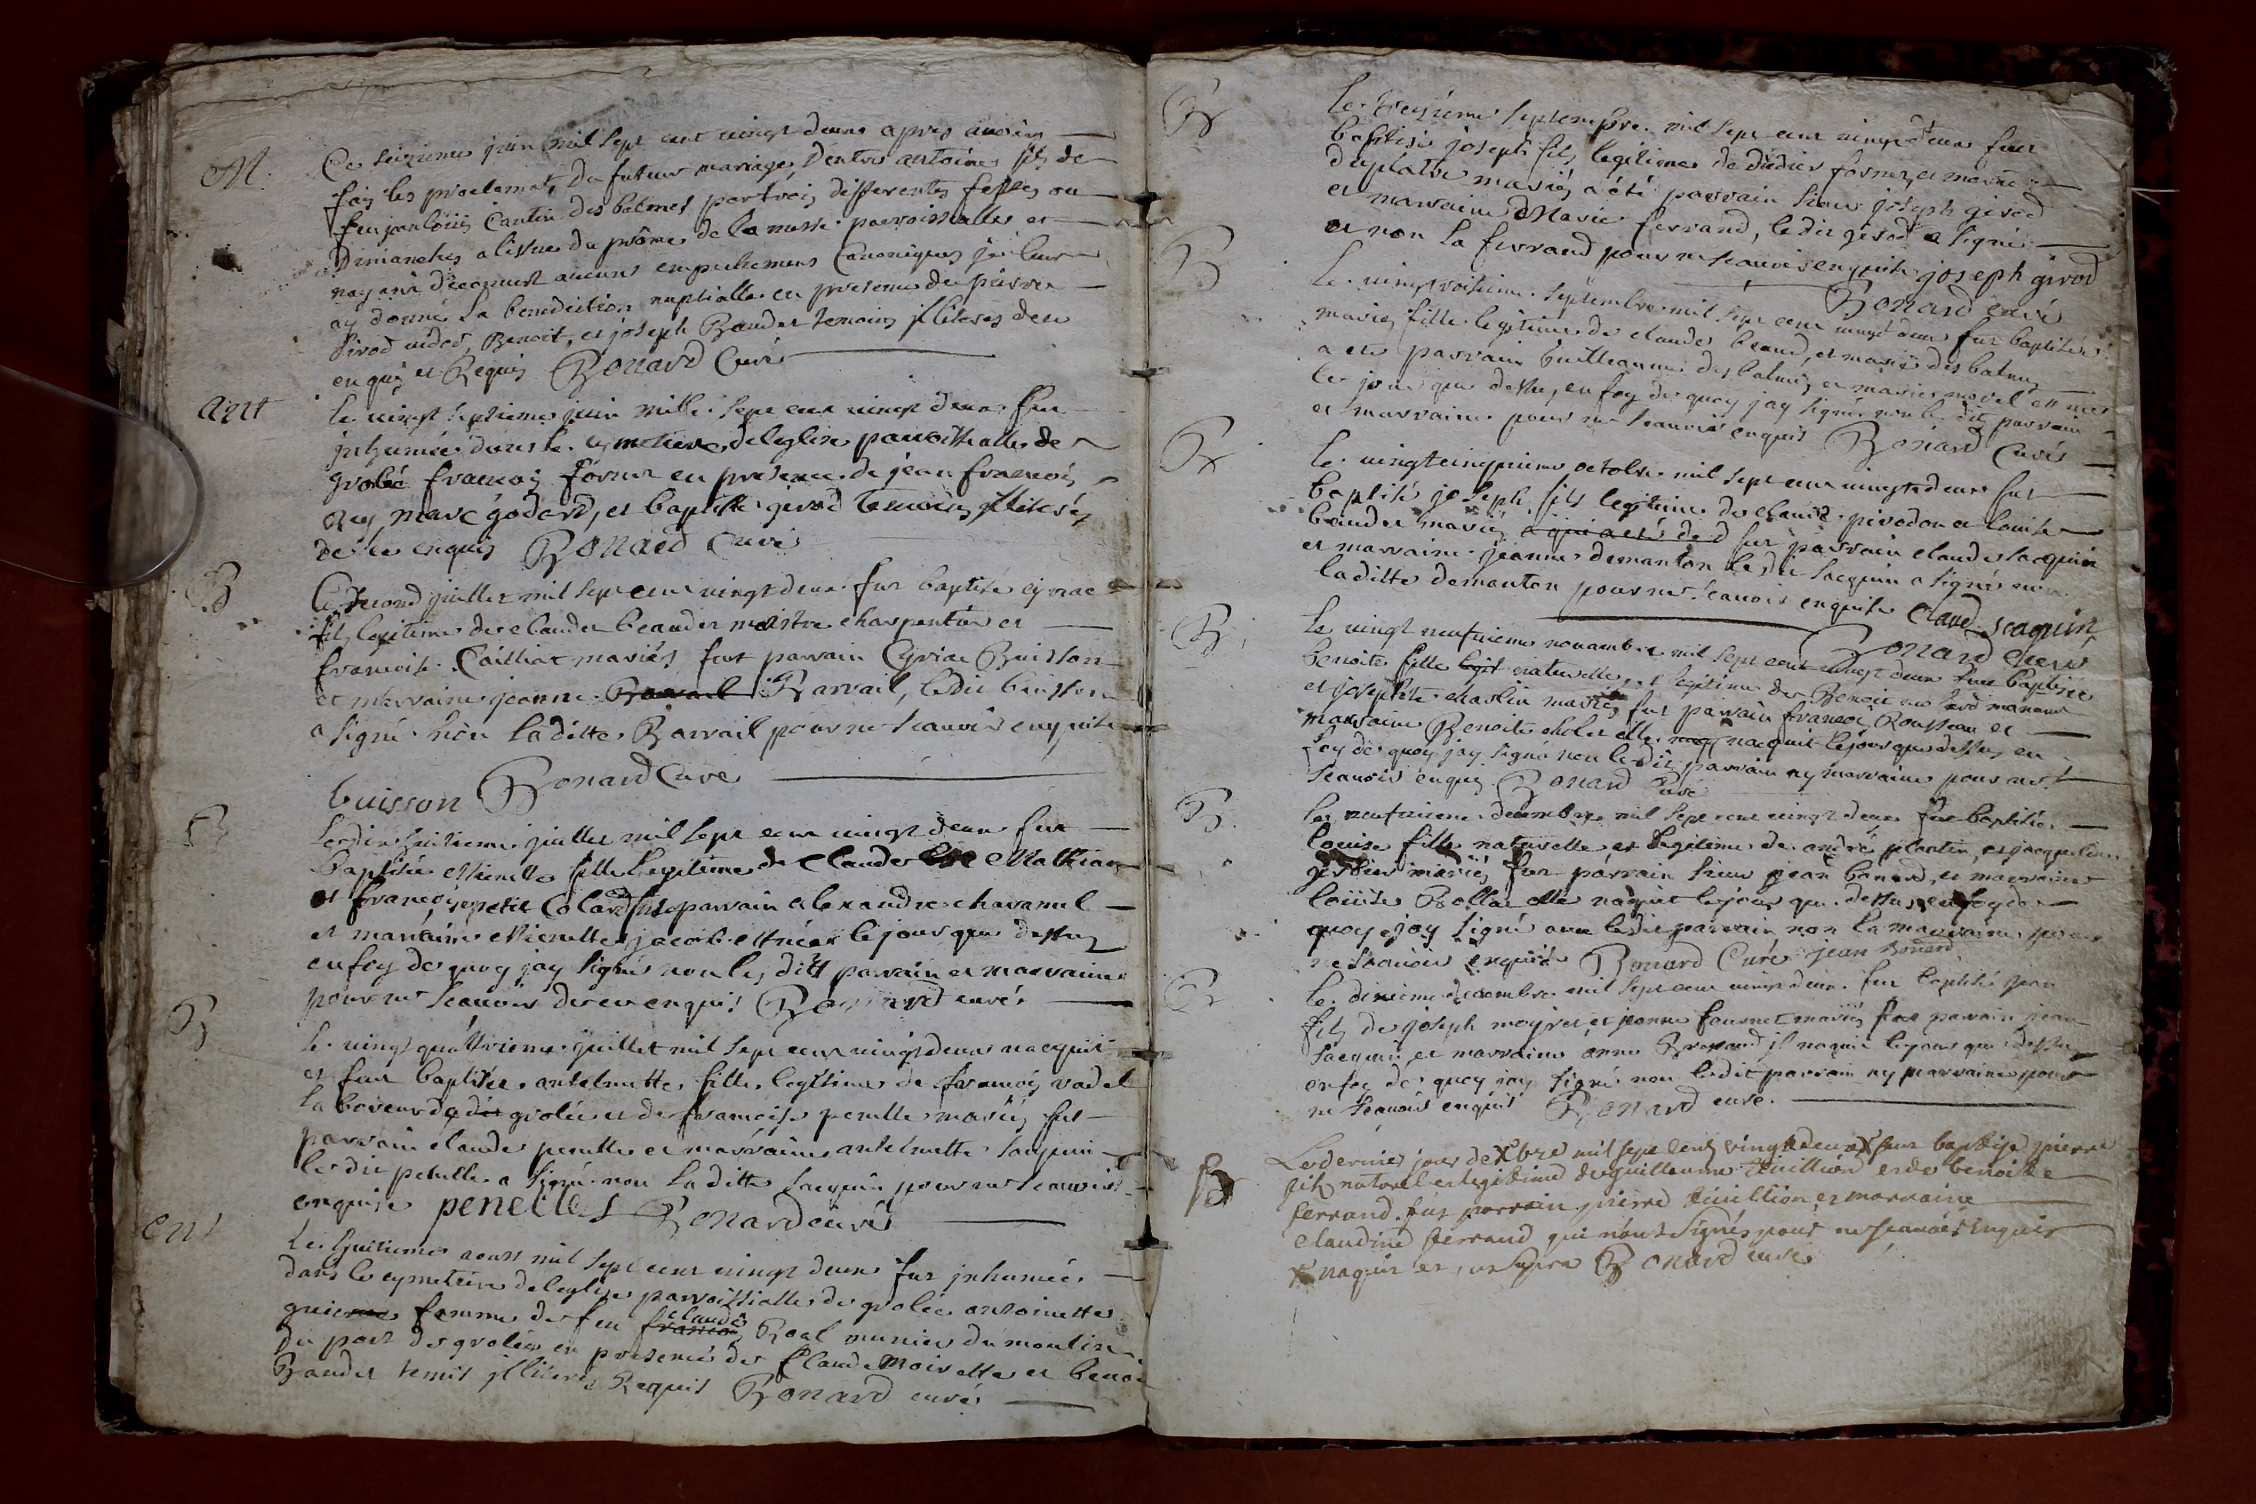 M.
Ce seizieme juin mil sept cent vingt deux apres avoir
fais les proclamats du futur mariage, d'entre antoine fils de
feu jean loüis Cantin des balmes par trois differentes festes ou
dimanches a lissue du prône de la messe paroissialle et
nayant decouvert aucuns empechemens Canoniques je leur
ay donné la benediction nuptialle en presence de pierre
Girod Benoit, et joseph Baudet temoins jlliterés de ce
enquis et Requis Bonard Curé
ant
le vingt septieme juin mille sept cent vingt deux fut
jnhumée dans le cymetiere de leglise paroissialle de
grolée francois fornet en presence de jean francois
Rey, marc godard, et baptiste girod temoins jlliterés
de ce enquis Bonard Curé
B
Le second juillet mil sept cent vingt deux fut baptisé cyriac
fils legitime de claude beaudet maistre charpentier et
francoise Cailliat mariés fut parrain Cyriac Buisson
et marraine jeanne Barrail, ledit buisson
a signé non laditte Barrail pour ne scavoir enquise
buisson Bonard Curé
B
Le dix huitieme juillet mil sept cent vingt deux fut
baptisée fille legitime de Claude Mathian
et francoise petit Colard fut parrain alexandre chavanel
et marraine jacob et née le jour que dessus
en foy de quoy jay signé non les dits parrain et marraine
pour ne scavoir de ce enquis Bonard curé
B
le vingt quattrieme juillet mil sept cent vingt deux nacquit
et fut baptisée antelmette fille legitime de francois vadel
laboureur de grolée et de francoise penelle mariés fut
parrain claude penelle et marraine antelmette Jacquin
ledit penelle a signé non laditte Jacquin pour ne scavoir
enquise penelle Bonard curé
ent
Le huitieme aoust mil sept cent vingt deux fut jnhumée
dans le cymetiere de leglise parroissialle de grolée antoinette
femme de feu francois claude Boel munier du moulin
du port de grolée en presence de Claude Moirette et benoit
Baudet temis jlliterés Requis Bonard curé
B
le treizieme septempbre mil sept cent vingt deux fut
baptisé joseph fils legitime de didier fornet, et marie
duplatre mariés a été parrain sieur joseph girod
et marraine Marie ferrand, ledit girod a signé
et non la ferrand pour ne scavoir enquise joseph girod
Bonard curé
B
Le vingt troisieme septembre mil sept cent vingt deux fut baptisée
marie fille legitime de claude beaud, et marie des balmes
a ete parrain Guillaume des balmes et marie morel et née
le jour que dessus, en foy de quoy jay signé non les dits parrain
et marraine pour ne scavoir enquis Bonard Curé
B
Le vingt cinquieme octobre mil sept cent vingt deux fut
baptisé joseph fils legitime de claude pivodon et louise
baudet mariés fut parrain claude Jacquin
et marraine jeanne demanton ledit Jacquin a signé non
laditte demanton pour ne scavoir enquise Claud Jcaquin
Bonard curé
B
le vingt neufvieme novambre mil sept cent vingt deux fut baptisée
benoite fille naturelle et legitime de Benoit
et josephte marlin mariés fut parrain francois Rousseau et
marraine Benoite cholet elle nacquit le jour que dessus en
foy de quoy jay signé non ledit parrain ny marraine pour ne
scavoir enquis Bonard Curé
B
Le neufvieme decembre mil sept cent vingt deux fut baptisée
louise fille naturelle et legitime de andré plantin, et jacqueline
mariés fut parrain sieur jean bonard, et marraine
louise Rolla elle naquit le jour que dessus en foy de
quoy jay signé avec ledit parrain non la marraine pour
ne scavoir enquise Bonard Curé jean Bonard
B
le dixieme decembre mil sept cent vingt deux fut baptisé jean
fils de joseph moyret et jeanne fournet mariés fut parrain jean
Jacquin, et marraine anne Bronand jl naquit le jour que dessus
en foy de quoy jay signé non ledit parrain ny marraine pour
ne scavoir enquis Bonard curé.
B
Le dernier jour de Xbre mil sept cent vingt deux fut baptisé pierre
fils naturel et legitime de guillaume Tuillion et de benoiste
ferrand fut parrain pierre tuillion et marraine
claudine ferrand qui nont signés pour ne scavoir enquis
naquit et ut supra Bonard curé